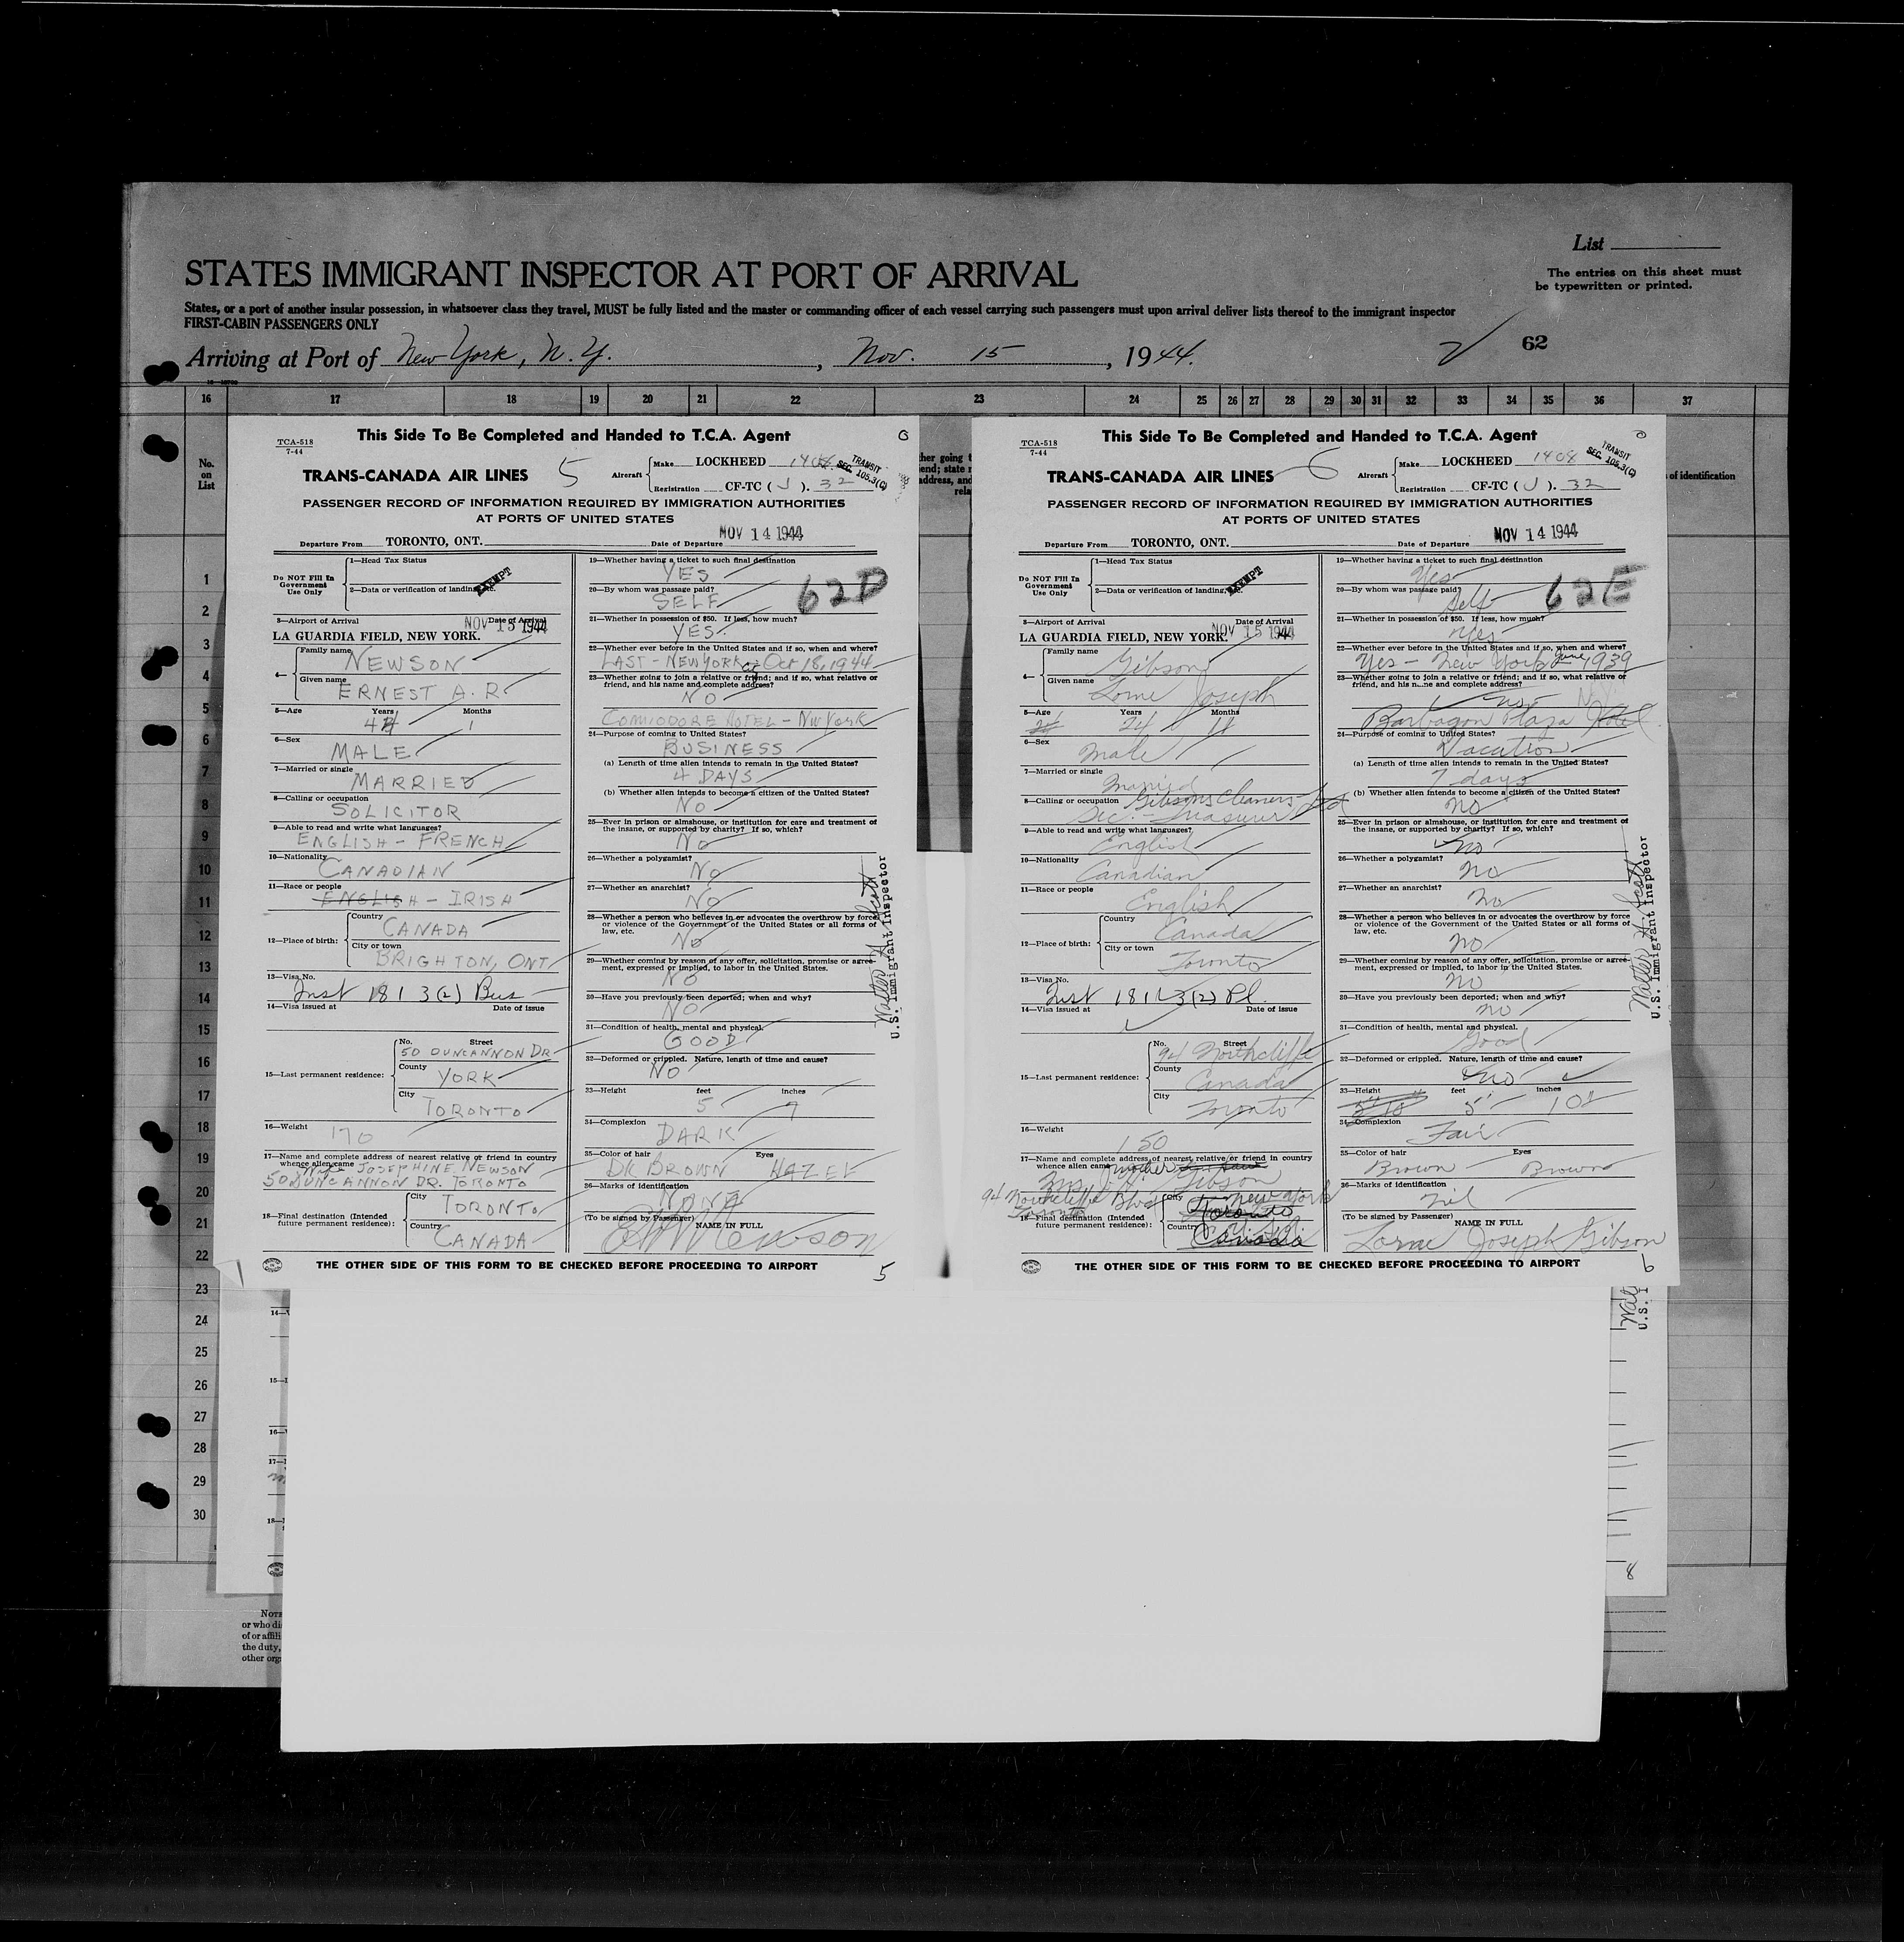 List
STATES IMMIGRANT INSPECTOR AT PORT OF ARRIVAL
The entries on this sheet must
be typewritten or printed.
States, or a port of another insular possession, in whatsoever class they travel, MUST be fully listed and the master or commanding officer of each vessel carrying such passengers must upon arrival deliver lists thereof to the immigrant inspector
FIRST-CABIN PASSENGERS ONLY
62
Arriving at Port of New York, N.Y. , Nov. 15 , 1944.
16 17 18 19 20 21 22 23 24 25 26 27 28 29 30 31 32 33 34 35 36 37
No.
on
List
of identification
1
2
3
4
5
6
7
8
9
10
11
12
13
14
15
16
17
18
19
20
21
22
23
24
25
26
27
28
29
30
TCA-518
7-44
This Side To Be Completed and Handed to T.C.A. Agent
TRANS-CANADA AIR LINES 5
Aircraft
Make LOCKHEED 1408
Registration CF-TC ( J ). 32
TRANSIT
SEC. 105.3(C)
PASSENGER RECORD OF INFORMATION REQUIRED BY IMMIGRATION AUTHORITIES
AT PORTS OF UNITED STATES
Departure From TORONTO, ONT. Date of Departure NOV 14 1944
Do NOT Fill In
Government
Use Only
1—Head Tax Status
EXEMPT
2—Data or verification of landing, etc.
3—Airport of Arrival Date of Arrival
LA GUARDIA FIELD, NEW YORK. NOV 15 1944
4—
Family name NEWSON
Given name ERNEST A. R.
5—Age Years Months
44 1
6—Sex
MALE
7—Married or single
MARRIED
8—Calling or occupation
SOLICITOR
9—Able to read and write what languages?
ENGLISH - FRENCH
10—Nationality
CANADIAN
11—Race or people
ENGLISH - IRISH
12—Place of birth:
Country
CANADA
City or town
BRIGHTON, ONT.
13—Visa No.
Inst 181 3(2) Bus
14—Visa issued at Date of issue
15—Last permanent residence:
No. Street
50 DUNCANNON DR
County
YORK
City
TORONTO
16—Weight
170
17—Name and complete address of nearest relative or friend in country
whence alien came
Wife JOSEPHINE NEWSON
50 DUNCANNON DR. TORONTO
18—Final destination (Intended
future permanent residence):
City
TORONTO
Country
CANADA
19—Whether having a ticket to such final destination
YES
62D
20—By whom was passage paid?
SELF
21—Whether in possession of $50. If less, how much?
YES.
22—Whether ever before in the United States and if so, when and where?
LAST - NEW YORK Oct 18, 1944
23—Whether going to join a relative or friend; and if so, what relative or
friend, and his name and complete address?
NO
COMMODORE HOTEL - NW YORK
24—Purpose of coming to United States?
BUSINESS
(a) Length of time alien intends to remain in the United States?
4 DAYS
(b) Whether alien intends to become a citizen of the United States?
NO
25—Ever in prison or almshouse, or institution for care and treatment of
the insane, or supported by charity? If so, which?
NO
26—Whether a polygamist?
NO
27—Whether an anarchist?
NO
28—Whether a person who believes in or advocates the overthrow by force
or violence of the Government of the United States or all forms of
law, etc.
NO
29—Whether coming by reason of any offer, solicitation, promise or agree-
ment, expressed or implied, to labor in the United States.
NO
30—Have you previously been deported; when and why?
NO
31—Condition of health, mental and physical.
GOOD
32—Deformed or crippled. Nature, length of time and cause?
NO
33—Height feet inches
5 7
34—Complexion
DARK
35—Color of hair Eyes
DK BROWN HAZEL
36—Marks of identification
NONE
(To be signed by Passenger) NAME IN FULL
Walter A. Scott
U.S. Immigrant Inspector
THE OTHER SIDE OF THIS FORM TO BE CHECKED BEFORE PROCEEDING TO AIRPORT
5
TCA-518
7-44
This Side To Be Completed and Handed to T.C.A. Agent
TRANS-CANADA AIR LINES 6
Aircraft
Make LOCKHEED 1408
Registration CF-TC ( J ). 32
TRANSIT
SEC. 105.3(C)
PASSENGER RECORD OF INFORMATION REQUIRED BY IMMIGRATION AUTHORITIES
AT PORTS OF UNITED STATES
Departure From TORONTO, ONT. Date of Departure NOV 14 1944
Do NOT Fill In
Government
Use Only
1—Head Tax Status
EXEMPT
2—Data or verification of landing, etc.
3—Airport of Arrival Date of Arrival
LA GUARDIA FIELD, NEW YORK. NOV 15 1944
4—
Family name Gibson
Given name Lorne Joseph
5—Age Years Months
24 24 11
6—Sex
Male
7—Married or single
Married
8—Calling or occupation Gibsons Cleaners Ltd
Sec. - Treasurer
9—Able to read and write what languages?
English
10—Nationality
Canadian
11—Race or people
English
12—Place of birth:
Country
Canada
City or town
Toronto
13—Visa No.
Inst 181 3(2) Pl.
14—Visa issued at Date of issue
15—Last permanent residence:
No. Street
94 Northcliffe
County
Canada
City
Toronto
16—Weight
150
17—Name and complete address of nearest relative or friend in country
whence alien came
mother
Mrs. J. Gibson
94 Northcliffe Blvd
Toronto
18—Final destination (Intended
future permanent residence):
City
New York
Toronto
Country
Canada
19—Whether having a ticket to such final destination
Yes
62E
20—By whom was passage paid?
Self
21—Whether in possession of $50. If less, how much?
Yes
22—Whether ever before in the United States and if so, when and where?
Yes - New York June 1939
23—Whether going to join a relative or friend; and if so, what relative or
friend, and his name and complete address?
no.
Barbazon Plaza Hotel
24—Purpose of coming to United States?
Vacation
(a) Length of time alien intends to remain in the United States?
7 days
(b) Whether alien intends to become a citizen of the United States?
no
25—Ever in prison or almshouse, or institution for care and treatment of
the insane, or supported by charity? If so, which?
no
26—Whether a polygamist?
no
27—Whether an anarchist?
no
28—Whether a person who believes in or advocates the overthrow by force
or violence of the Government of the United States or all forms of
law, etc.
no
29—Whether coming by reason of any offer, solicitation, promise or agree-
ment, expressed or implied, to labor in the United States.
no
30—Have you previously been deported; when and why?
no
31—Condition of health, mental and physical.
Good
32—Deformed or crippled. Nature, length of time and cause?
no
33—Height feet inches
5' 10" 5' 10½
34—Complexion
Fair
35—Color of hair Eyes
Brown Brown
36—Marks of identification
nil
(To be signed by Passenger) NAME IN FULL
Lorne Joseph Gibson
Walter A. Scott
U.S. Immigrant Inspector
THE OTHER SIDE OF THIS FORM TO BE CHECKED BEFORE PROCEEDING TO AIRPORT
6
8